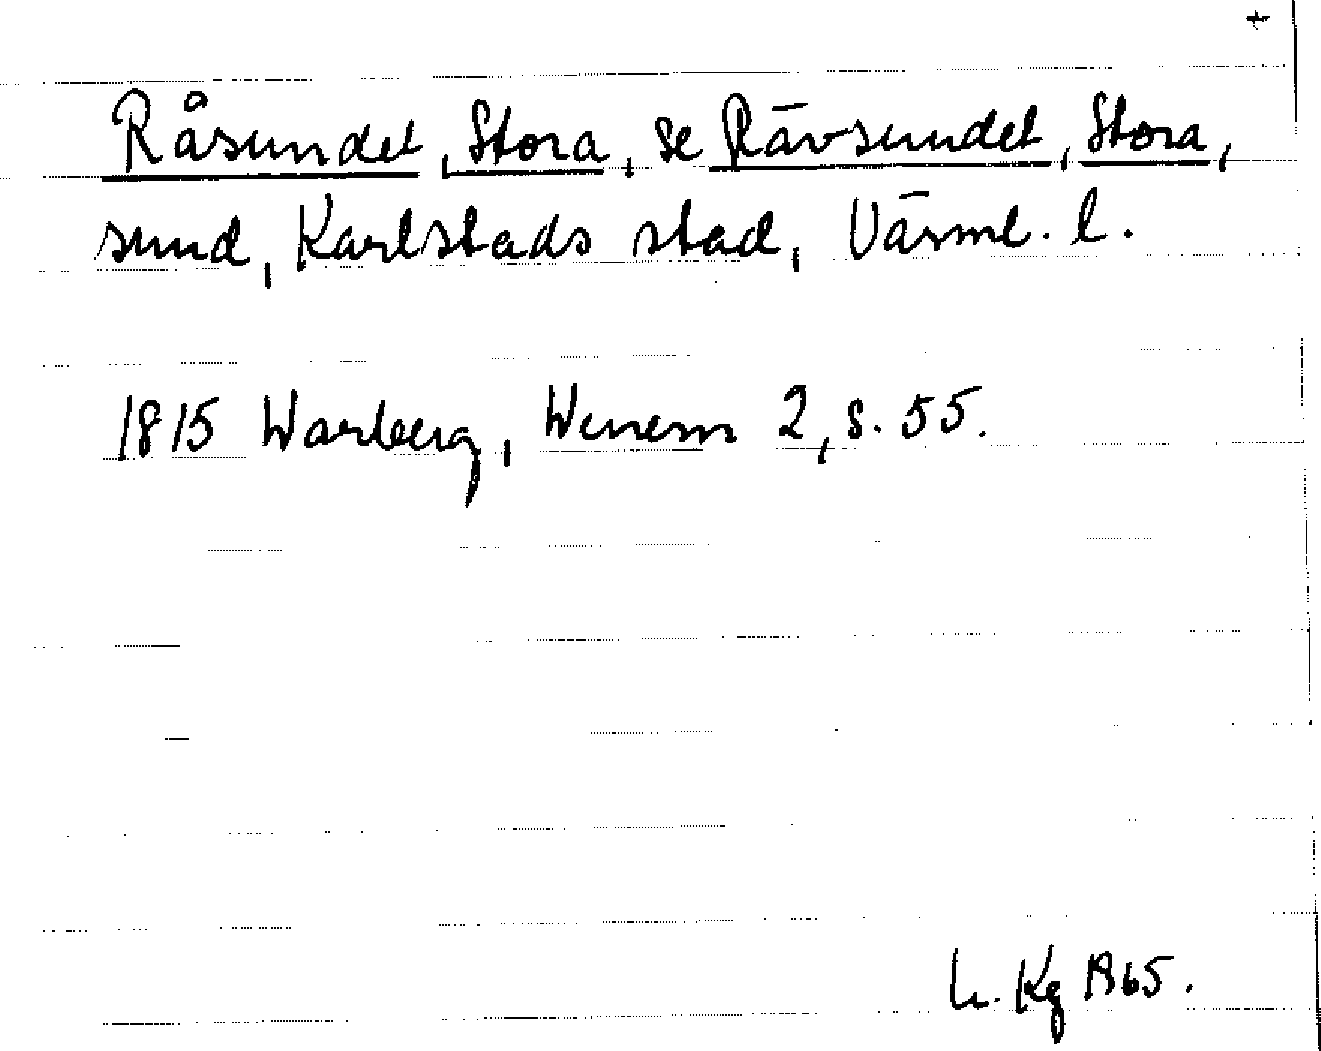 Råsundet, Stora, se Rävsundet, Stora,
sund, Karlstads stad, Värml. l.
1815 Warberg, Wenern 2, s. 55.
L. Kg 1965.